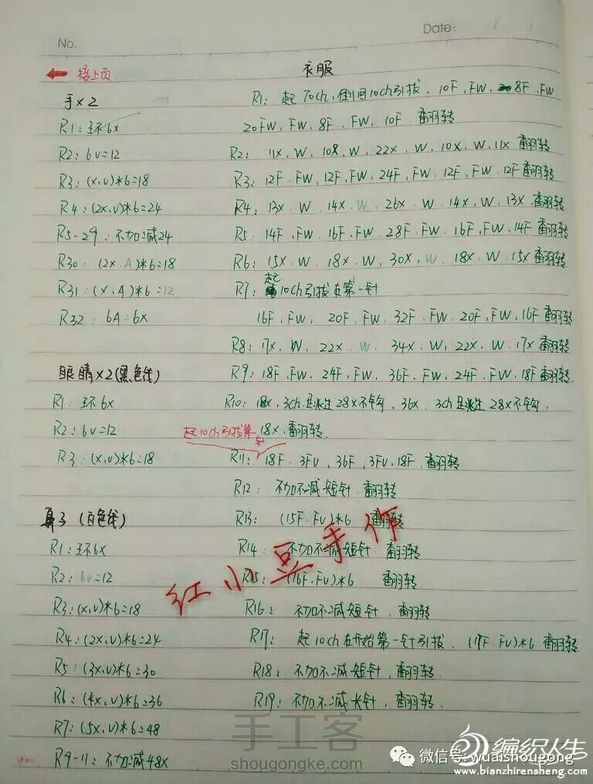 No.
Date:
接上页
手×2
R1:环6x
R2: 6v=12
R3:(x,v)*6=18
R4:(2x,v)*6=24
R5-29:不加减24
R30:(2x.A)*6=18
R31:(x,A)*6=12
R32: 6A=6x
眼睛×2(黑色线)
R1:环6x
R2:6v=12
R3:(x,v)*6=18
鼻子(白色线)
R1:环6x
R2:6v=12
R3:(x,v)*6=18
R4:(2x,v)*6=24
R5:(3x,v)*6=30
R6:(4x,v)*6=36
R7:(5x,v)*6=48
R9-11:不加减48x
衣服
R1:起70ch,倒1间10ch引拔,10F,FW,8F,FW
20FW,FW,8F,FW,10F.翻转
R2: 11x.W.10x.W.22x.W.10x.W.11x 翻转
R3:12F.FW,12F,FW,24F,FW,12F,FW,12F翻转
R4:13x.W.14x.W.26x.W.14x.W.13x 翻转
R5:14F,FW,16F,FW,28F,FW,16F,FW,14F翻转
R6:15x.W.18x.W.30x,W.18x.W.15x翻转
R7:起10ch引拔在第一针
16F,FW,20F,FW,32F,FW,20F,FW,16F翻转
R8:17x.W.22x.W.34x.W.22x.W.17x翻转
R9:18F,FW,24F,FW,36F,FW,24F,FW,18F翻转
R10:18x,3ch,28x不钩,36x,3ch,28x不钩
18x.翻转
起10ch引拔第一针
R11:18F.3FV,36F,3FV,18F.翻转
R12:不加不减短针.翻转
R13:(15F,FV)*6 翻转
R14:不加不减短针 翻转
R15:(16F,FV)*6 翻转
R16:不加不减短针.翻转
R17:起10ch在开始第一针引拔,(17F,FV)*6 翻转
R18:不加不减短针,翻转
R19:不加不减长针,翻转
红小豆手作
手工客
shougongke.com
微信号:wuaishougong
编织人生
www.bianzhirensheng.com